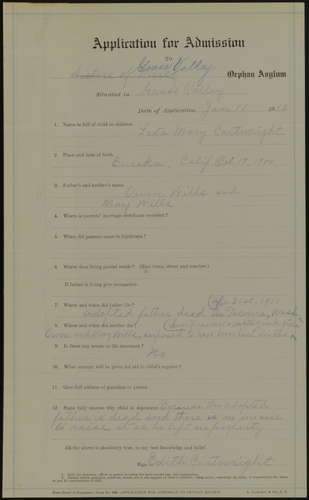 Application for Admission
TO
Grass Valley
Sisters of Mercy Orphan Asylum
Situated in Grass Valley
Date of Application, Jan 11 1912
1. Name in full of child or children.
Leta Mary Cartwright
2. Place and date of birth.
Eureka, Calif Oct 17, 1900
3. Father's and mother's name.
Owen Wills and
May Wills
4. Where is parents' marriage certificate recorded?
5. When did parents come to California?
6. Where does living parent reside? (Give town, street and number.)
If father is living give occupation.
7. Where and when did father die? 21st, 1911
Adopted father died in Tacoma, Wash
8. Where and when did mother die? San Francisco
Owen and May Wills, supposed to have been lost in the
9. Is there any estate or life insurance?
No
10. What amount will be given for aid to child's support?
11. Give full address of guardian or parent.
12. State fully reasons why child is dependent. Because the adopted
father is dead and there is no means
to raise it as he left no property
All the above is absolutely true, to my best knowledge and belief.
Edith Cartwright